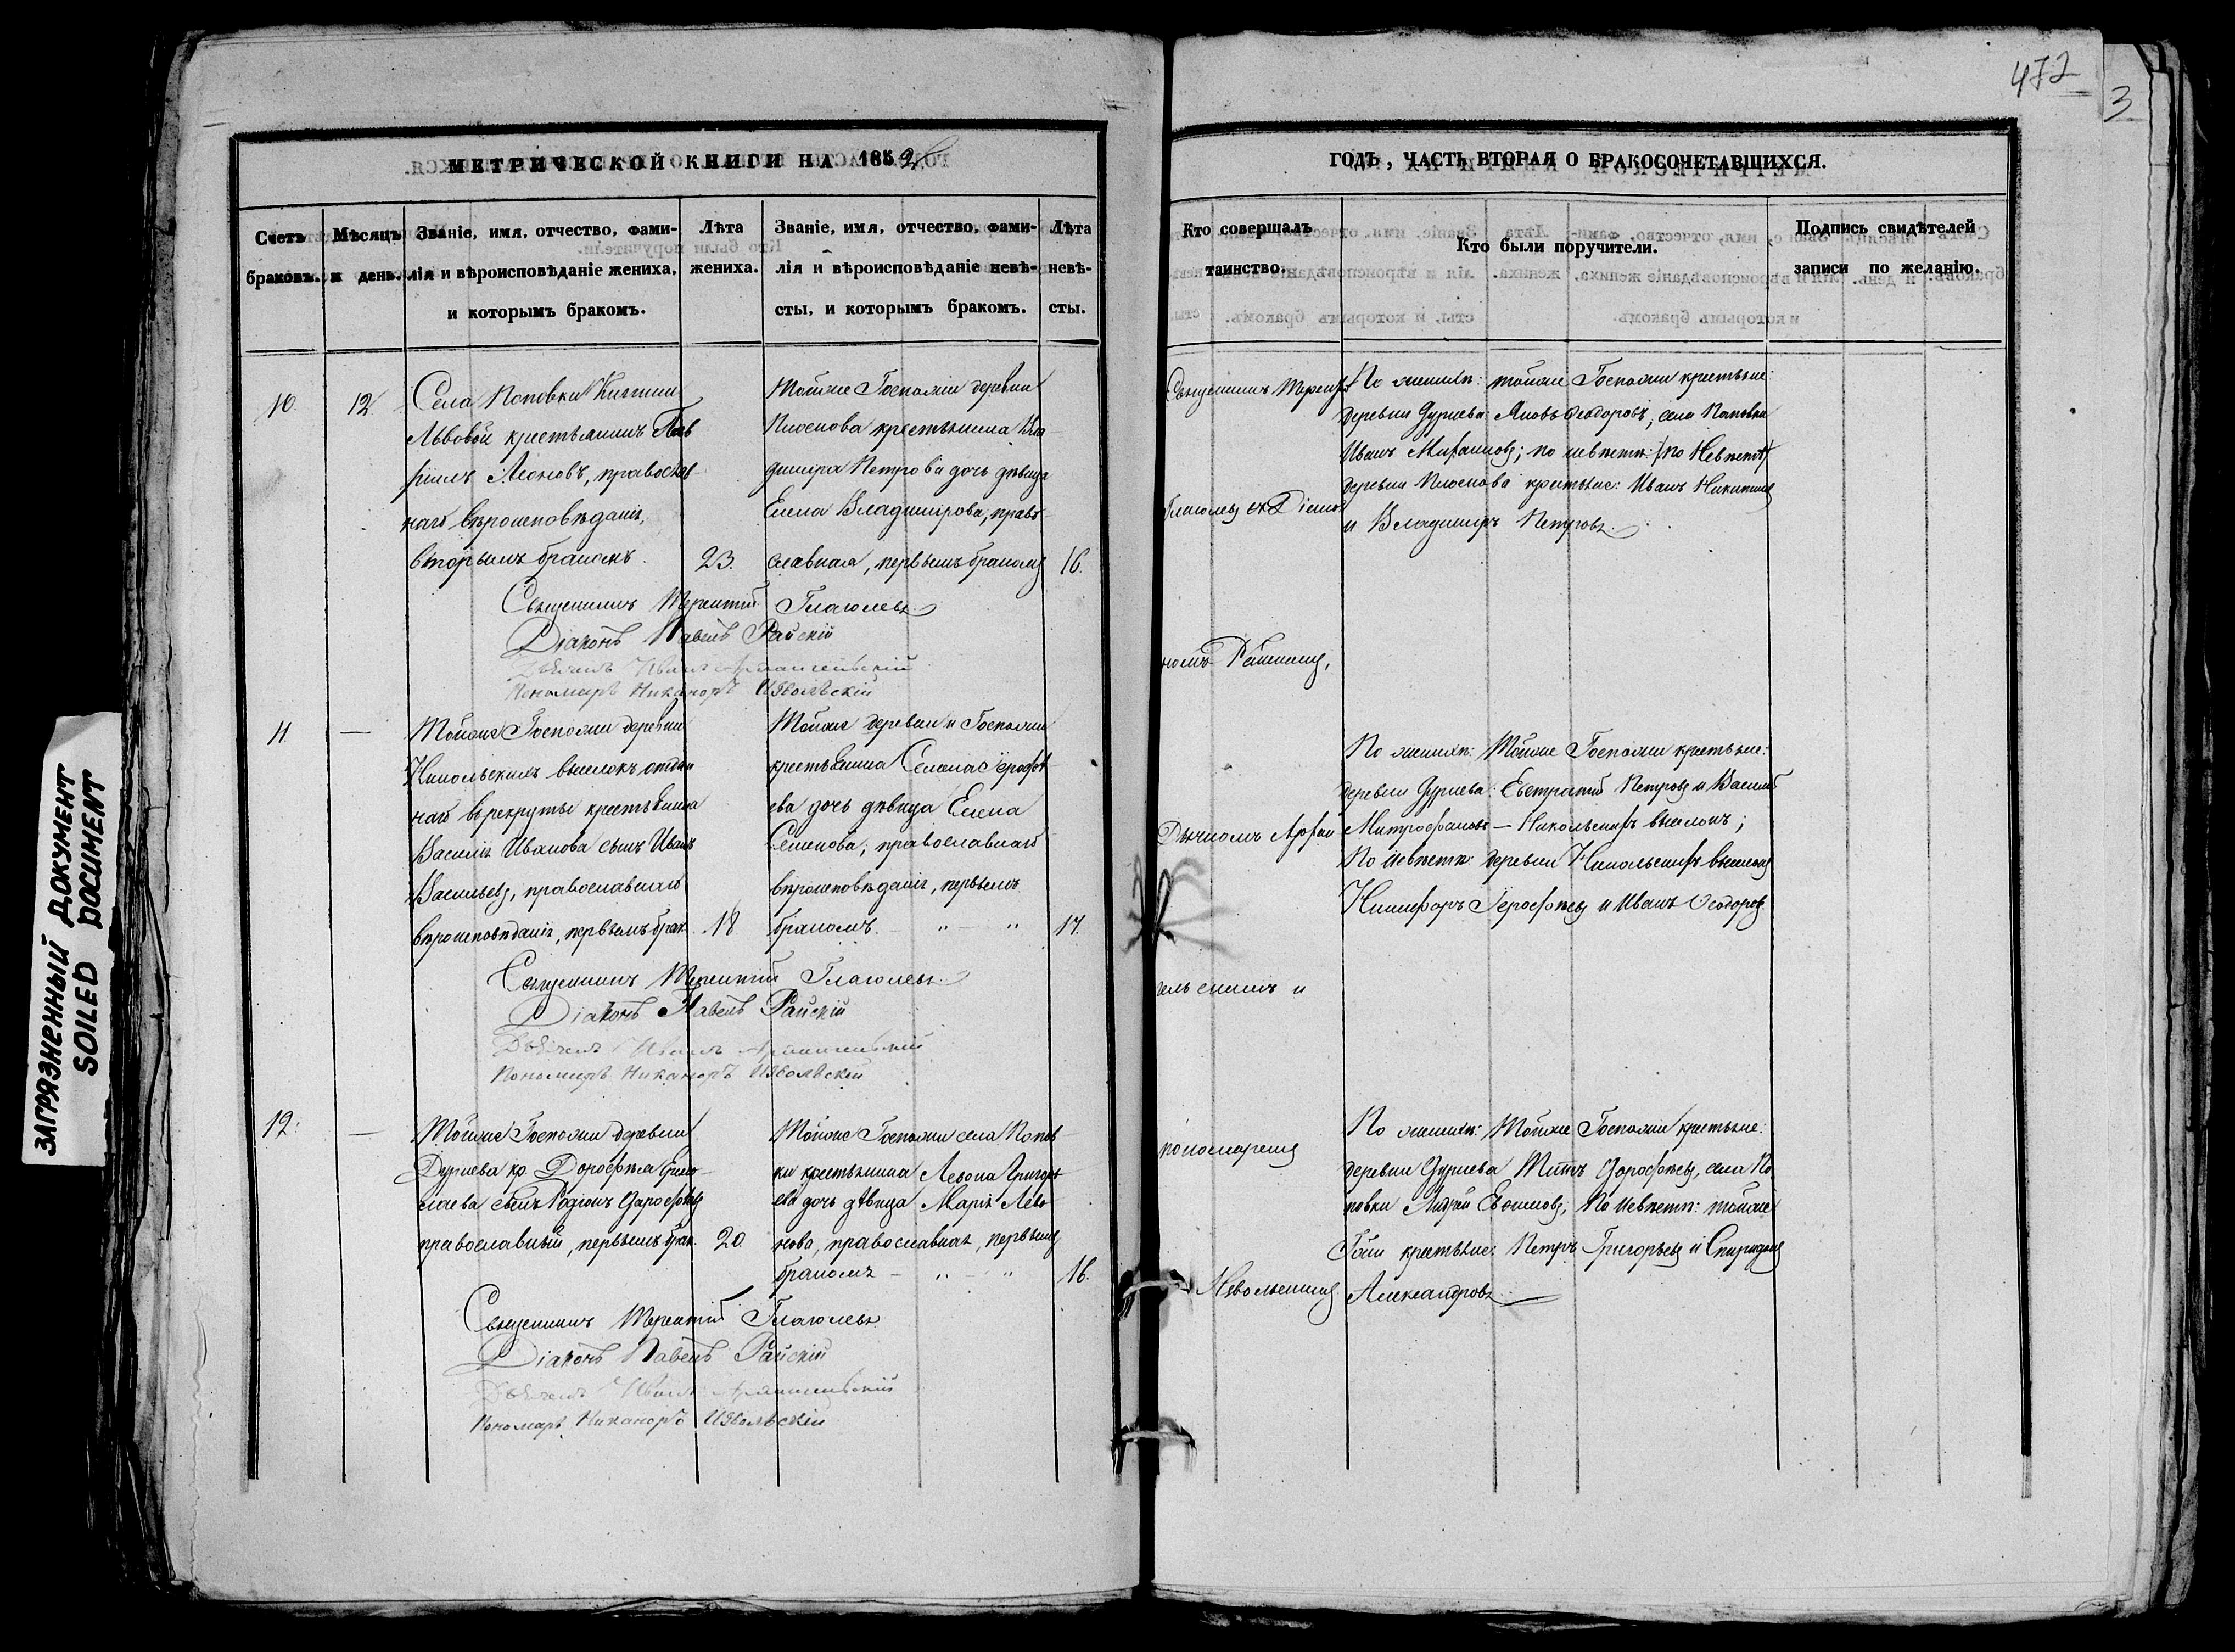 472
3
ЗАГРЯЗНЕННЫЙ ДОКУМЕНТ
SOILED DOCUMENT
МЕТРИЧЕСКОЙ КНИГИ НА 1852
Счетъ браковъ.
Мѣсяцъ и день.
Званіе, имя, отчество, фами-
лія и вѣроисповѣданіе жениха,
и которымъ бракомъ.
Лѣта
жениха.
Званіе, имя, отчество, фами-
лія и вѣроисповѣданіе невѣ-
сты, и которымъ бракомъ.
Лѣта
невѣ-
сты.
10.
12
Села Поповки Княгини
Львовой крестьянинъ Гав
ріилъ Леоновъ, православ
наго вѣроисповѣданія,
вторымъ бракомъ.
23.
Тойже Госпожи деревни
крестьянина Вла
димира Петрова дочь дѣвица
Елена Владимірова, право
славная, первымъ бракомъ
16.
Священникъ Терентій Глаголевъ
Діаконъ Павелъ Райскій
Дьячекъ Иванъ Архангельскій
Пономарь Никаноръ Извольскій
11.
—
Тойже Госпожи деревни
Никольскихъ выселокъ отдан
наго въ рекруты крестьянина
Василія Иванова сынъ Иванъ
Васильевъ, православнаго
вѣроисповѣданія, первымъ брак.
18
Тойже деревни и Госпожи
крестьянина Семена Герофѣ
ева дочь дѣвица Елена
Семенова, православнаго
вѣроисповѣданія, первымъ
бракомъ. — " — "
17.
Священникъ Терентій Глаголевъ.
Діаконъ Павелъ Райскій
Дьячекъ Иванъ Архангельскій
Пономарь Никаноръ Извольскій
12.
—
Тойже Госпожи деревни
Дуриева кр. Дорофѣя
сынъ Родіонъ Дорофѣевъ
православный, первымъ брак.
20.
Тойже Госпожи села Попов
ки крестьянина Левона Григорь
ева дочь дѣвица Марія Лево
нова, православная, первымъ
бракомъ — " — "
16.
Священникъ Терентій Глаголевъ
Діаконъ Павелъ Райскій
Дьячекъ Иванъ Архангельскій
Пономарь Никаноръ Извольскій
ГОДЪ, ЧАСТЬ ВТОРАЯ О БРАКОСОЧЕТАВШИХСЯ.
Кто совершалъ
таинство.
Кто были поручители.
Подпись свидѣтелей
записи по желанію.
Священникъ Терентій
Глаголевъ съ Діако
номъ Райскимъ,
Дьячкомъ Архан
гельскимъ и
пономаремъ
Извольскимъ
По женихѣ: тойже Госпожи крестьяне:
деревни Дуриева: Яковъ Ѳеодоровъ, села Поповки
Иванъ; по невѣстѣ: /по Невѣстѣ/
деревни крестьяне: Иванъ Никитинъ
и Владиміръ Петровъ.
По женихѣ: Тойже Госпожи крестьяне:
деревни Дуриева: Евстратій Петровъ и Василій
Митрофановъ — Никольскихъ выселокъ;
По невѣстѣ: деревни Никольскихъ выселокъ
Никифоръ Герофѣевъ и Иванъ Ѳеодоровъ
По женихѣ: Тойже Госпожи крестьяне:
деревни Дуриева Титъ Дорофѣевъ, села По
повки Андрей; По невѣстѣ: тойже
Гжи крестьяне: Петръ Григорьевъ и Спиридонъ
Александровъ.